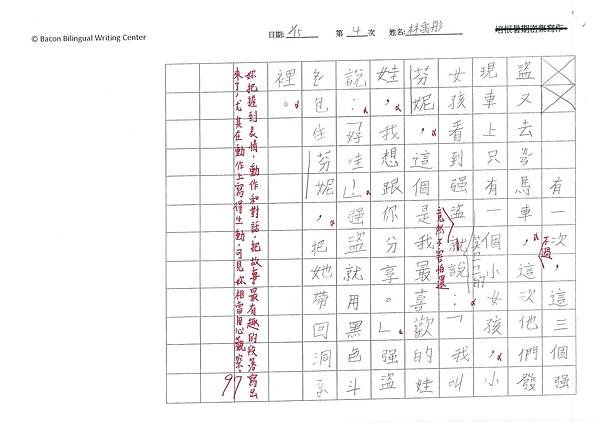 © Bacon Bilingual Writing Center
日期: 7/5 第 4 次 姓名:
培根暑期密集寫作
有一次這三個強
盜又去
馬車，這次他們發
現車上只有一個小女孩，小
女孩看到強盜就說：「我叫
芬妮，這個是我最喜歡的娃
娃，我想跟你分享。」強盜
說：「好哇！」強盜就用黑色斗
包包住芬妮，把她帶回洞
裡。
不過，
竟然不害怕還
妳把握到表情，動作和對話，把故事最有趣的段落寫出
來了，尤其在動作上寫得生動，可見妳相當用心觀察。
97